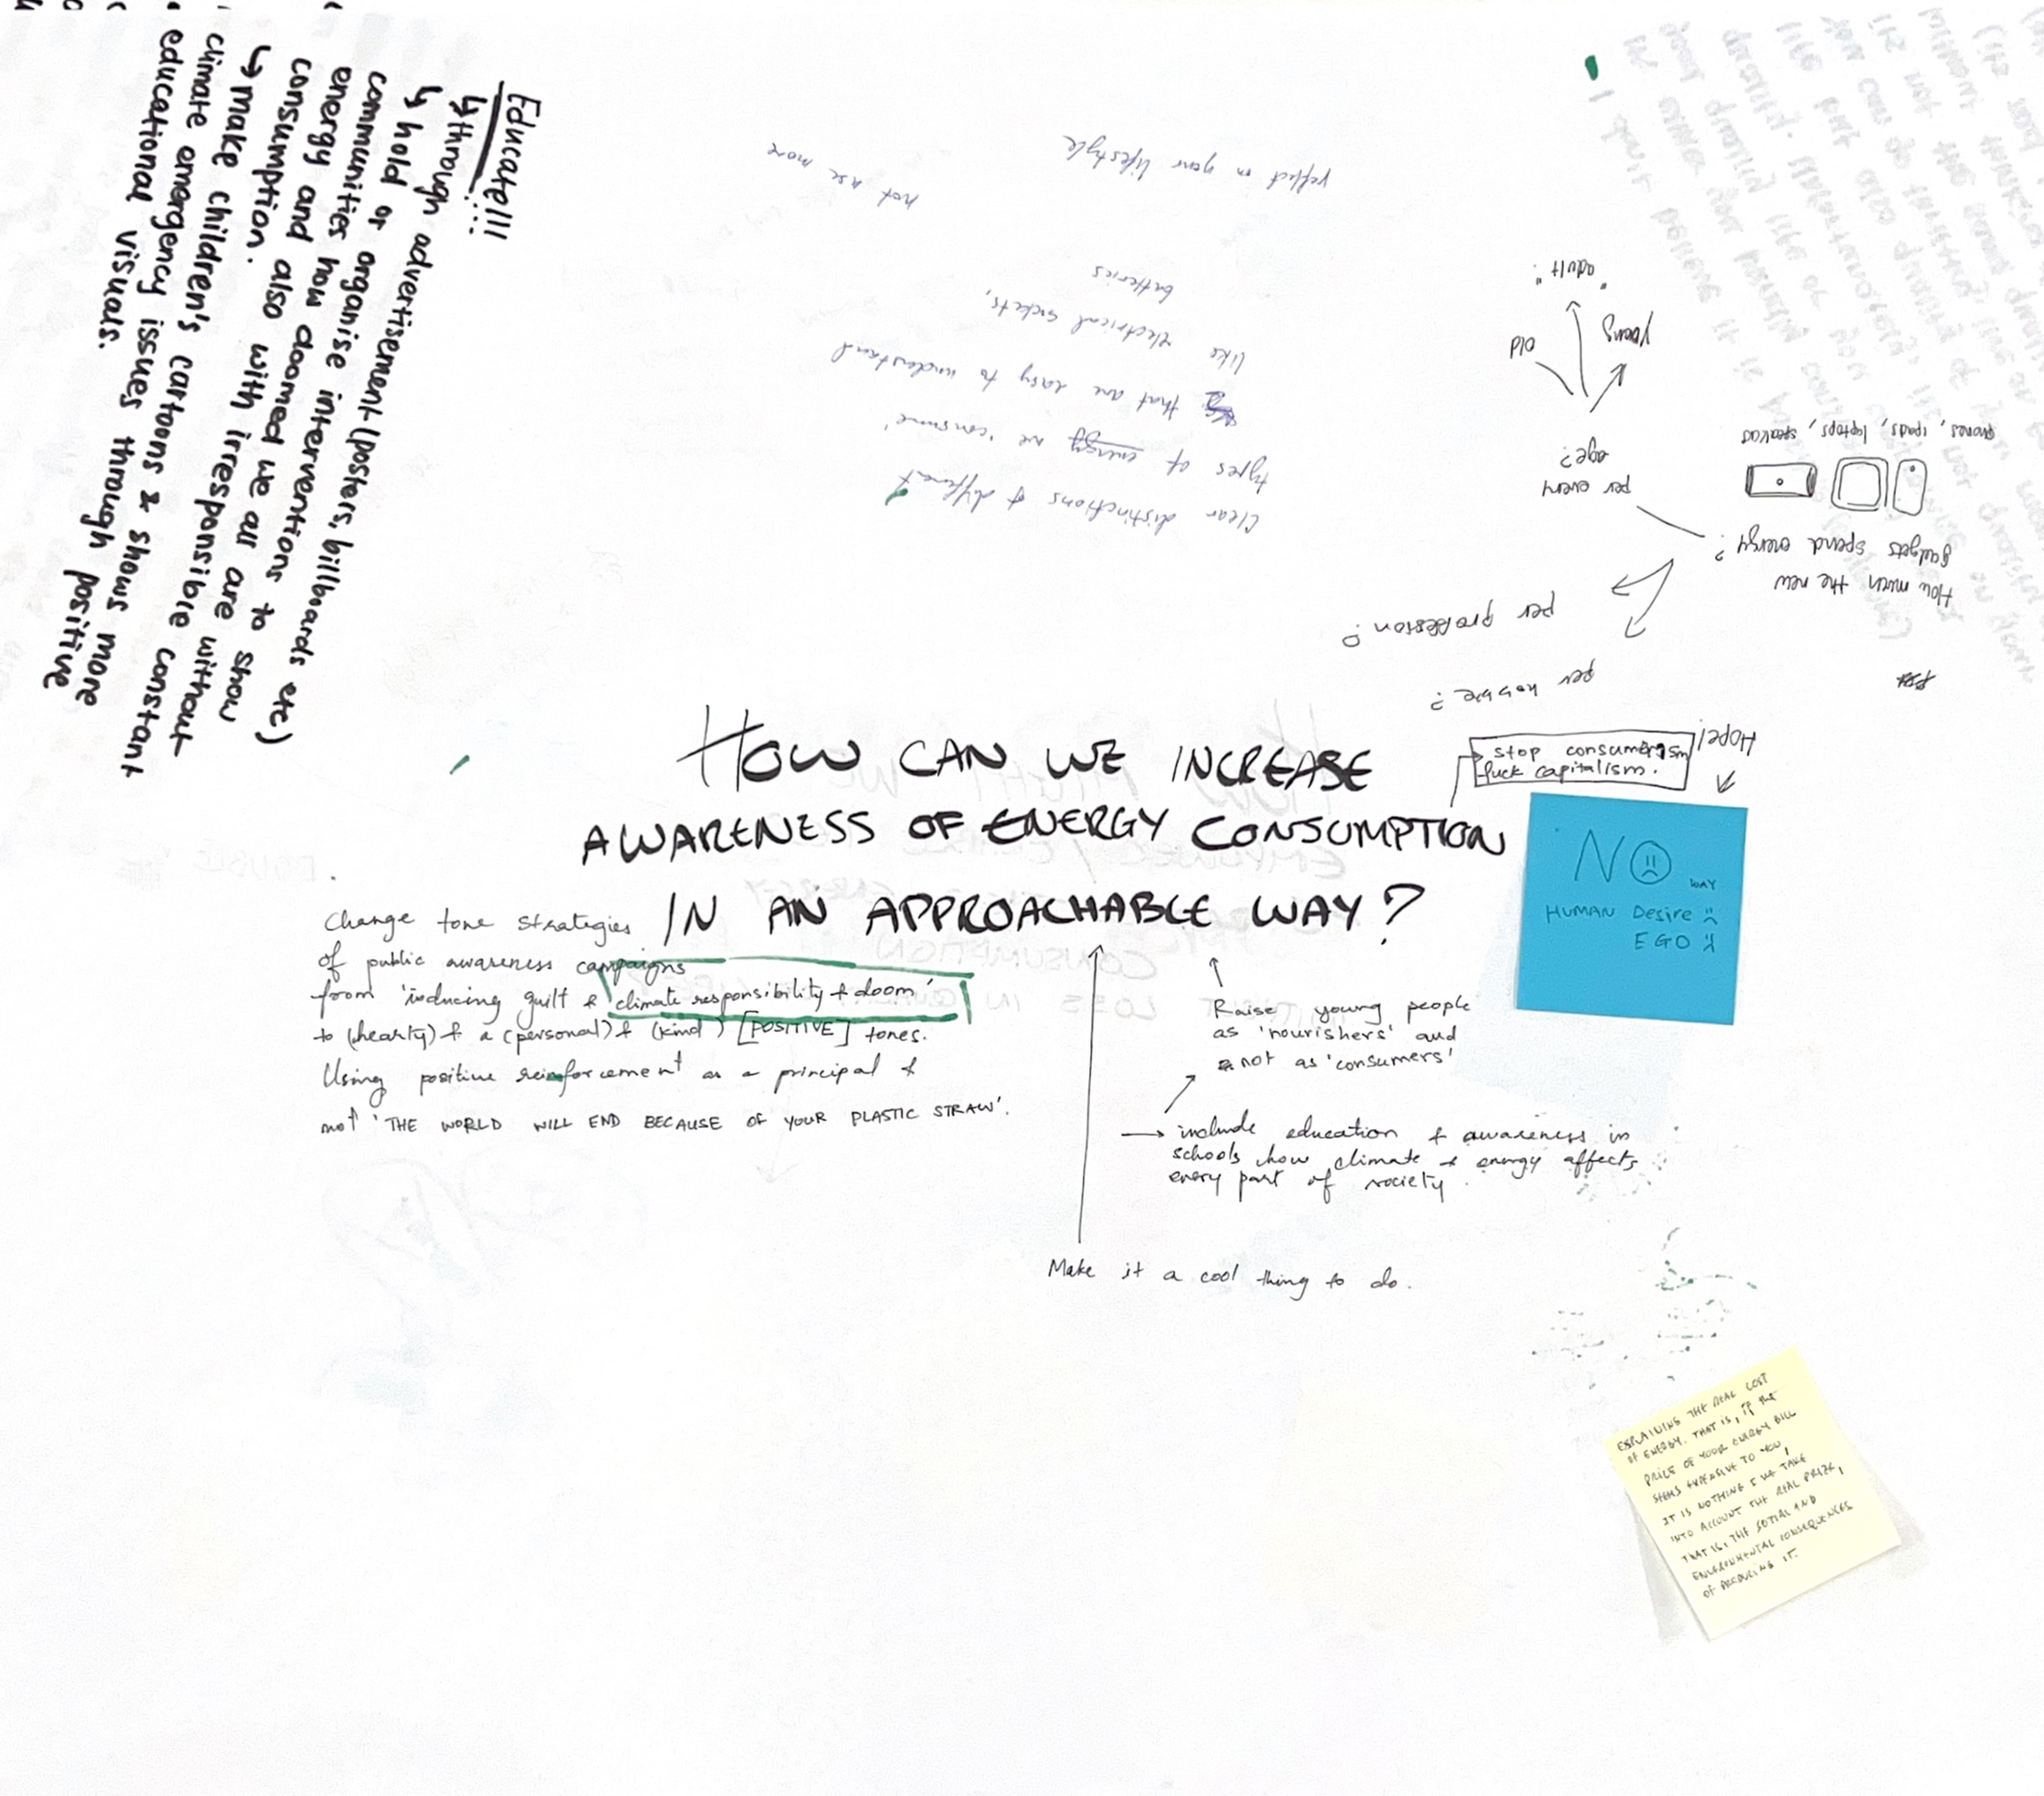 Educate!!!
↳ through advertisement (posters, billboards etc)
↳ hold or organise interventions to
communities how doomed we all are to show
energy and also with irresponsible without
consumption.
↳ make children's cartoons & shows more
climate emergency issues through positive
educational visuals.
constant
not use more
reflect on your lifestyle
Clear distinctions of different
types of energy we 'consume'
that are easy to understand
like electrical sockets,
batteries
How much the new
gadgets spend energy?
phones, ipads, laptops, speakers
per every
age?
old
"adult"
young
per profession?
per house?
Hope!
stop consumerism
fuck capitalism.
HOW CAN WE INCREASE
AWARENESS OF ENERGY CONSUMPTION
IN AN APPROACHABLE WAY?
NO
WAY
HUMAN Desire
EGO
Change tone strategies
of public awareness campaigns
from 'inducing guilt & climate responsibility & doom'
to (hearty) & a (personal) & (kind) [POSITIVE] tones.
Using positive reinforcement as a principal &
not 'THE WORLD WILL END BECAUSE OF YOUR PLASTIC STRAW'.
Raise young people
as 'nourishers' and
not as 'consumers'
→ include education & awareness in
schools how climate & energy affects
every part of society.
Make it a cool thing to do.
EXPLAINING THE REAL COST
OF ENERGY. THAT IS, IF THE
PRICE OF YOUR ENERGY BILL
SEEMS EXPENSIVE TO YOU,
IT IS NOTHING IF WE TAKE
INTO ACCOUNT THE REAL PRIZE,
THAT IS, THE SOCIAL AND
ENVIRONMENTAL CONSEQUENCES
OF PRODUCING IT.